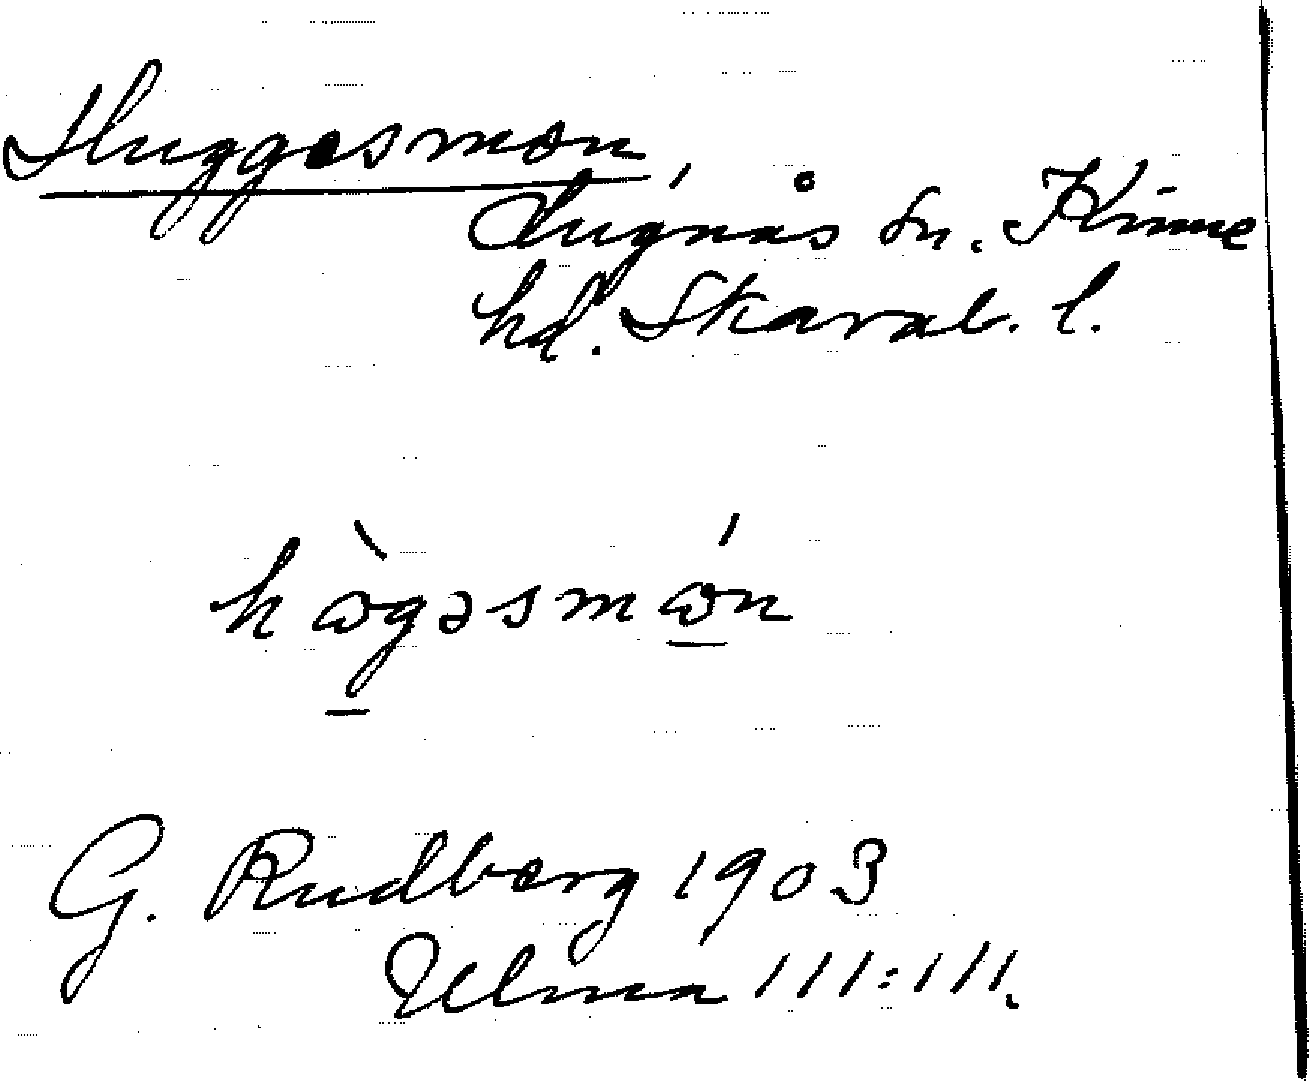 Huggesmon,
Lugnås sn. Kinne
hd. Skarab. l.
hògəsmón
G. Rudberg 1903
Ulma 111:111.